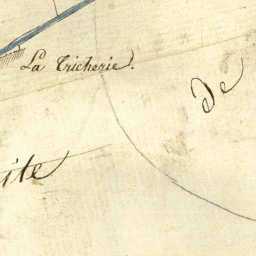 La Tricherie.
De
ite